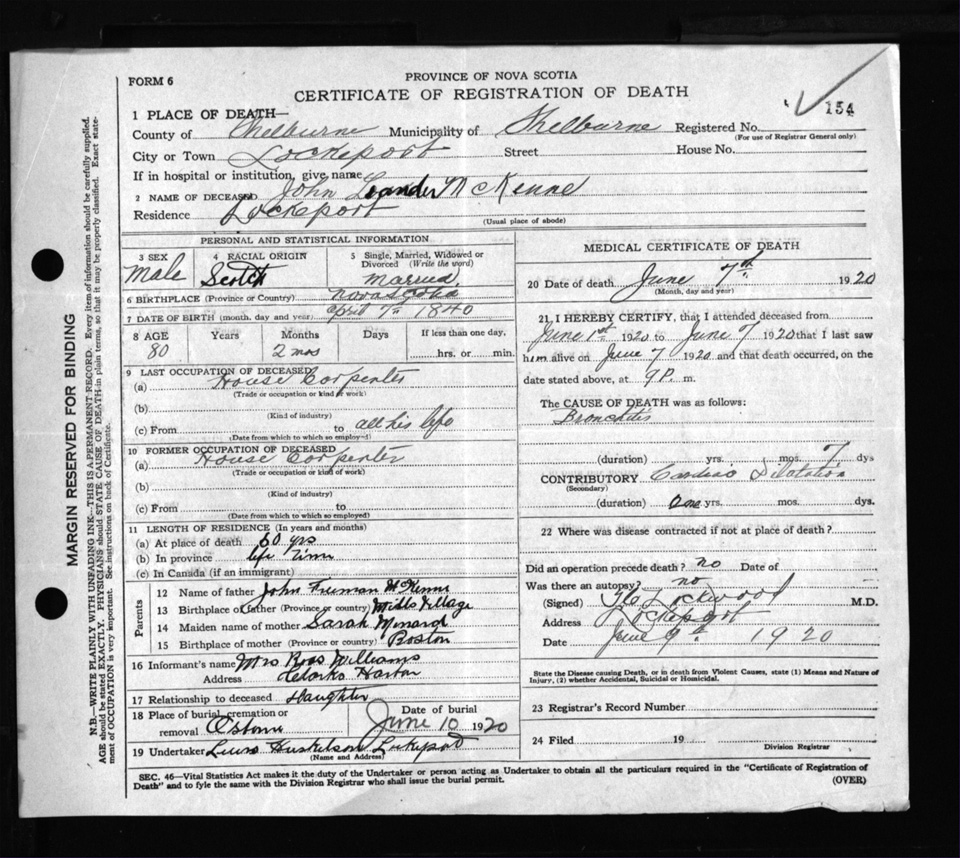 PROVINCE OF NOVA SCOTIA
FORM 6
CERTIFICATE OF REGISTRATION OF DEATH
154
1 PLACE OF DEATH—
County of Shelburne Municipality of Shelburne Registered No.
(For use of Registrar General only)
City or Town Lockeport Street House No.
If in hospital or institution, give name
2 NAME OF DECEASED John Leander McKenne
Residence Lockeport
(Usual place of abode)
PERSONAL AND STATISTICAL INFORMATION
3 SEX Male
4 RACIAL ORIGIN Scotch
5 Single, Married, Widowed or Divorced (Write the word) Married.
6 BIRTHPLACE (Province or Country) Nova Scotia
7 DATE OF BIRTH (month, day and year) April 7th 1840
8 AGE Years Months Days If less than one day,
80 2 mos hrs. or min.
9 LAST OCCUPATION OF DECEASED
(a) House Carpenter
(Trade or occupation or kind of work)
(b)
(Kind of industry)
(c) From to all his life
(Date from which to which so employed)
10 FORMER OCCUPATION OF DECEASED
(a) House Carpenter
(Trade or occupation or kind of work)
(b)
(Kind of industry)
(c) From to
(Date from which to which so employed)
11 LENGTH OF RESIDENCE (In years and months)
(a) At place of death 60 yrs
(b) In province life time
(c) In Canada (if an immigrant)
Parents
12 Name of father John Freeman McKenne
13 Birthplace of father (Province or country) Mills Village
14 Maiden name of mother Sarah Minard
15 Birthplace of mother (Province or country) Boston
16 Informant's name Mrs Ross Williams
Address Clarks Harbor
17 Relationship to deceased Daughter
18 Place of burial, cremation or removal Osborne
Date of burial June 10 1920
19 Undertaker Lewis Huskilson Lockeport
(Name and Address)
MEDICAL CERTIFICATE OF DEATH
20 Date of death June 7th 1920
(Month, day and year)
21 I HEREBY CERTIFY, that I attended deceased from
June 1st 1920 to June 7 1920 that I last saw
him alive on June 7 1920 and that death occurred, on the
date stated above, at 9 P. m.
The CAUSE OF DEATH was as follows:
Bronchitis
(duration) yrs. mos. 7 dys
CONTRIBUTORY Cardiac Dilatation
(Secondary)
(duration) One yrs. mos. dys.
22 Where was disease contracted if not at place of death?
Did an operation precede death? no Date of
Was there an autopsy? no
(Signed) Lockwood M.D.
Address Lockeport
Date June 9th 1920
State the Disease causing Death, or in death from Violent Causes, state (1) Means and Nature of
Injury, (2) whether Accidental, Suicidal or Homicidal.
23 Registrar's Record Number
24 Filed 19
Division Registrar
SEC. 46—Vital Statistics Act makes it the duty of the Undertaker or person acting as Undertaker to obtain all the particulars required in the "Certificate of Registration of
Death" and to fyle the same with the Division Registrar who shall issue the burial permit. (OVER)
MARGIN RESERVED FOR BINDING
N.B.—WRITE PLAINLY WITH UNFADING INK—THIS IS A PERMANENT RECORD. Every item of information should be carefully supplied.
AGE should be stated EXACTLY. PHYSICIANS should STATE CAUSE OF DEATH in plain terms, so that it may be properly classified. Exact state-
ment of OCCUPATION is very important. See instructions on back of Certificate.